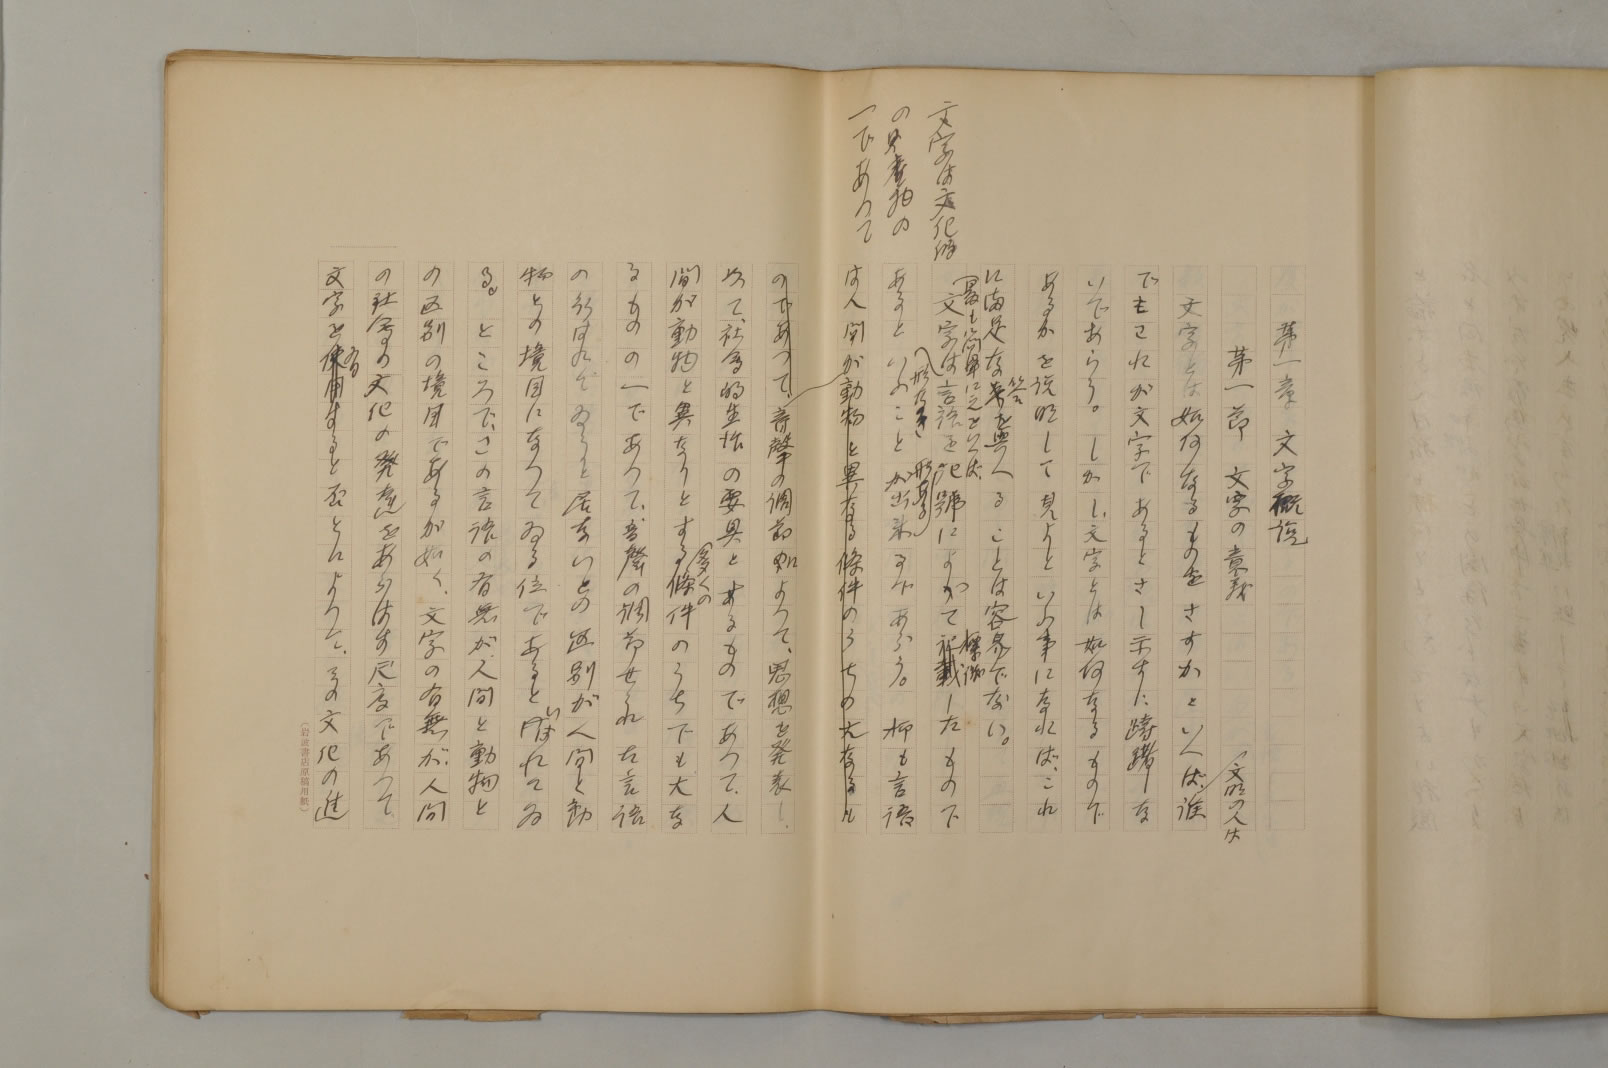 第一章　文字概説
第一節　文字の意義
文明の人は
文字とは如何なるものをさすかといへば、誰
でもこれが文字であるとさし示すに躊躇しな
いであらう。しかし、文字とは如何なるもので
あるかを説明して見よといふ事になれば、これ
に満足な答を與へることは容易でない。
最も簡単に之をいへば、
文字は言語を記號によつて記載したもので
形なき
形ある
標識
あるといふことが出来るであらう。抑も言語
文字は文化
の産物の
一であつて
は人間が動物と異なる條件のうちの大なるも
のであつて、音聲の調節によつて、思想を発表し、
以て、社会的生活の要具とするものであつて、人
間が動物と異なりとする條件のうちでも大な
多くの
るものの一であつて、音聲の調節せられた言語
の行はれてゐると居ないとの区別が人間と動
物との境目になつてゐる位であると いはれてゐ
る。ところで、この言語の有無が、人間と動物と
の区別の境目であるが如く、文字の有無が、人間
の社会の文化の発達をあらはす尺度であつて、
文字を使用すると否とによつて、その文化の進
有
（岩波書店原稿用紙）